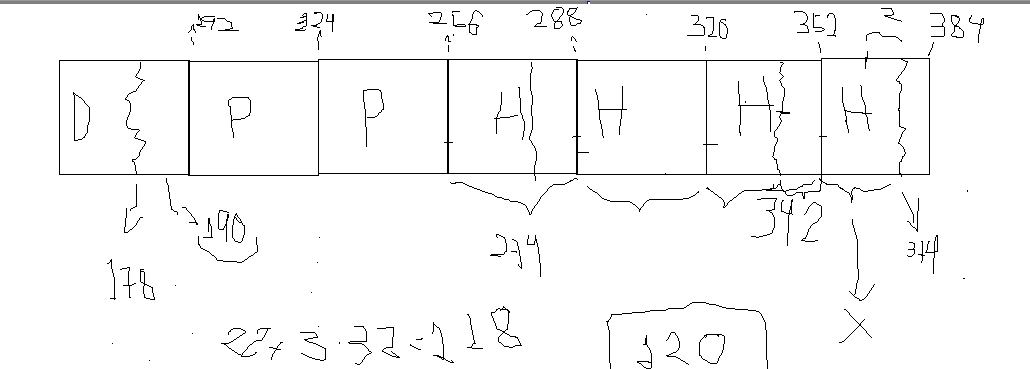 192 224 256 288 320 352 2 384
D P P H H H H
190 342
178 274 374
X
22+3·32=118 120